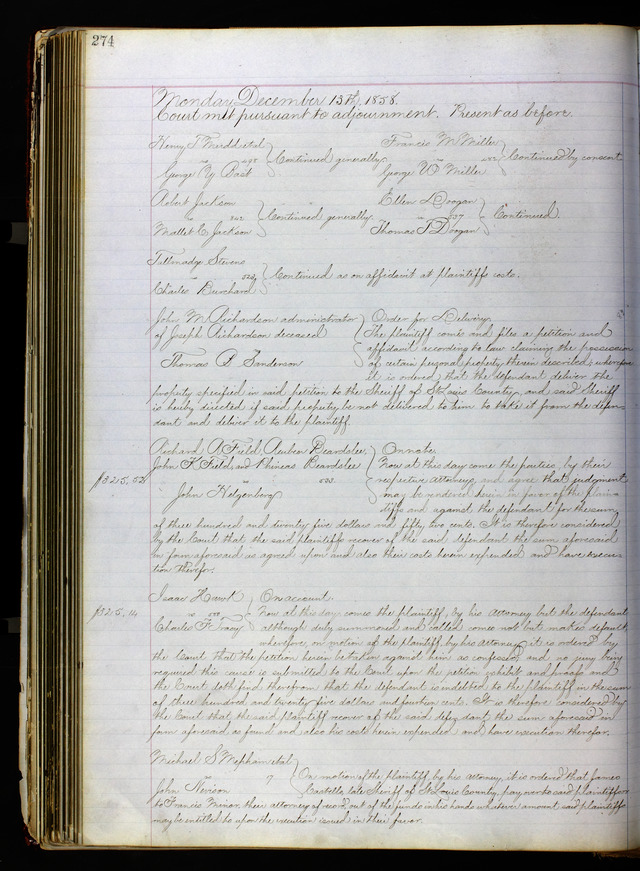 274
Monday December 13th, 1858.
Court met pursuant to adjournment. Present as before.
Henry T et al
vs 298 Continued generally.
George Y Bast
Francis M Miller
vs Continued by consent
George W Miller
Robert Jackson
vs 302 Continued generally.
Mallet C Jackson
Ellen Doogan
vs 337 Continued.
Thomas T Doogan
Tallmadge Stevens
Continued as on affidavit at plaintiffs costs.
Charles Burchard
John M Richardson administrator
of Joseph Richardson deceased
vs
Thomas B Sanderson
Order for Delivery
The plaintiff comes and files a petition and
affidavit according to law claiming the possession
of certain personal property therein described; wherefore
it is ordered that the defendant deliver the
property specified in said petition to the Sheriff of St Louis County, and said Sheriff
is hereby directed if said property be not delivered to him to take it from the defen-
dant and deliver it to the plaintiff.
Richard A Field, Reuben Beardslee,
John K Field, and Phineas Beardslee
vs 533
John Helgenberg
$325,52
On note.
Now at this day come the parties, by their
respective attorneys, and agree that judgment
may be rendered herein in favor of the plain-
tiffs and against the defendant for the sum
of three hundred and twenty five dollars and fifty two cents. It is therefore considered
by the Court that the said plaintiffs recover of the said defendant the sum aforesaid
in form aforesaid as agreed upon and also their costs herein expended and have execu-
tion therefor.
Isaac Hurst
vs 579
Charles F Tracy
$325,14
On account.
Now at this day comes the plaintiff, by his attorney but the defendant
although duly summoned and called comes not but makes default,
wherefore, on motion of the plaintiff, by his attorney, it is ordered by
the Court that the petition herein be taken against him as confessed, and no jury being
required this cause is submitted to the Court upon the petition exhibit and proofs and
the Court doth find therefrom that the defendant is indebted to the plaintiff in the sum
of three hundred and twenty five dollars and fourteen cents. It is therefore considered by
the Court that the said plaintiff recover of the said defendant the sum aforesaid in
form aforesaid as found and also his costs herein expended and have execution therefor.
Michael S Mepham et al
vs 7
John Nevison
On motion of the plaintiff by his attorney, it is ordered that James
Castello, late Sheriff of St Louis County, pay over to said plaintiffs or
to Francis Minor, their attorney of record, out of the funds in his hands whatever amount said plaintiffs
may be entitled to upon the execution issued in their favor.